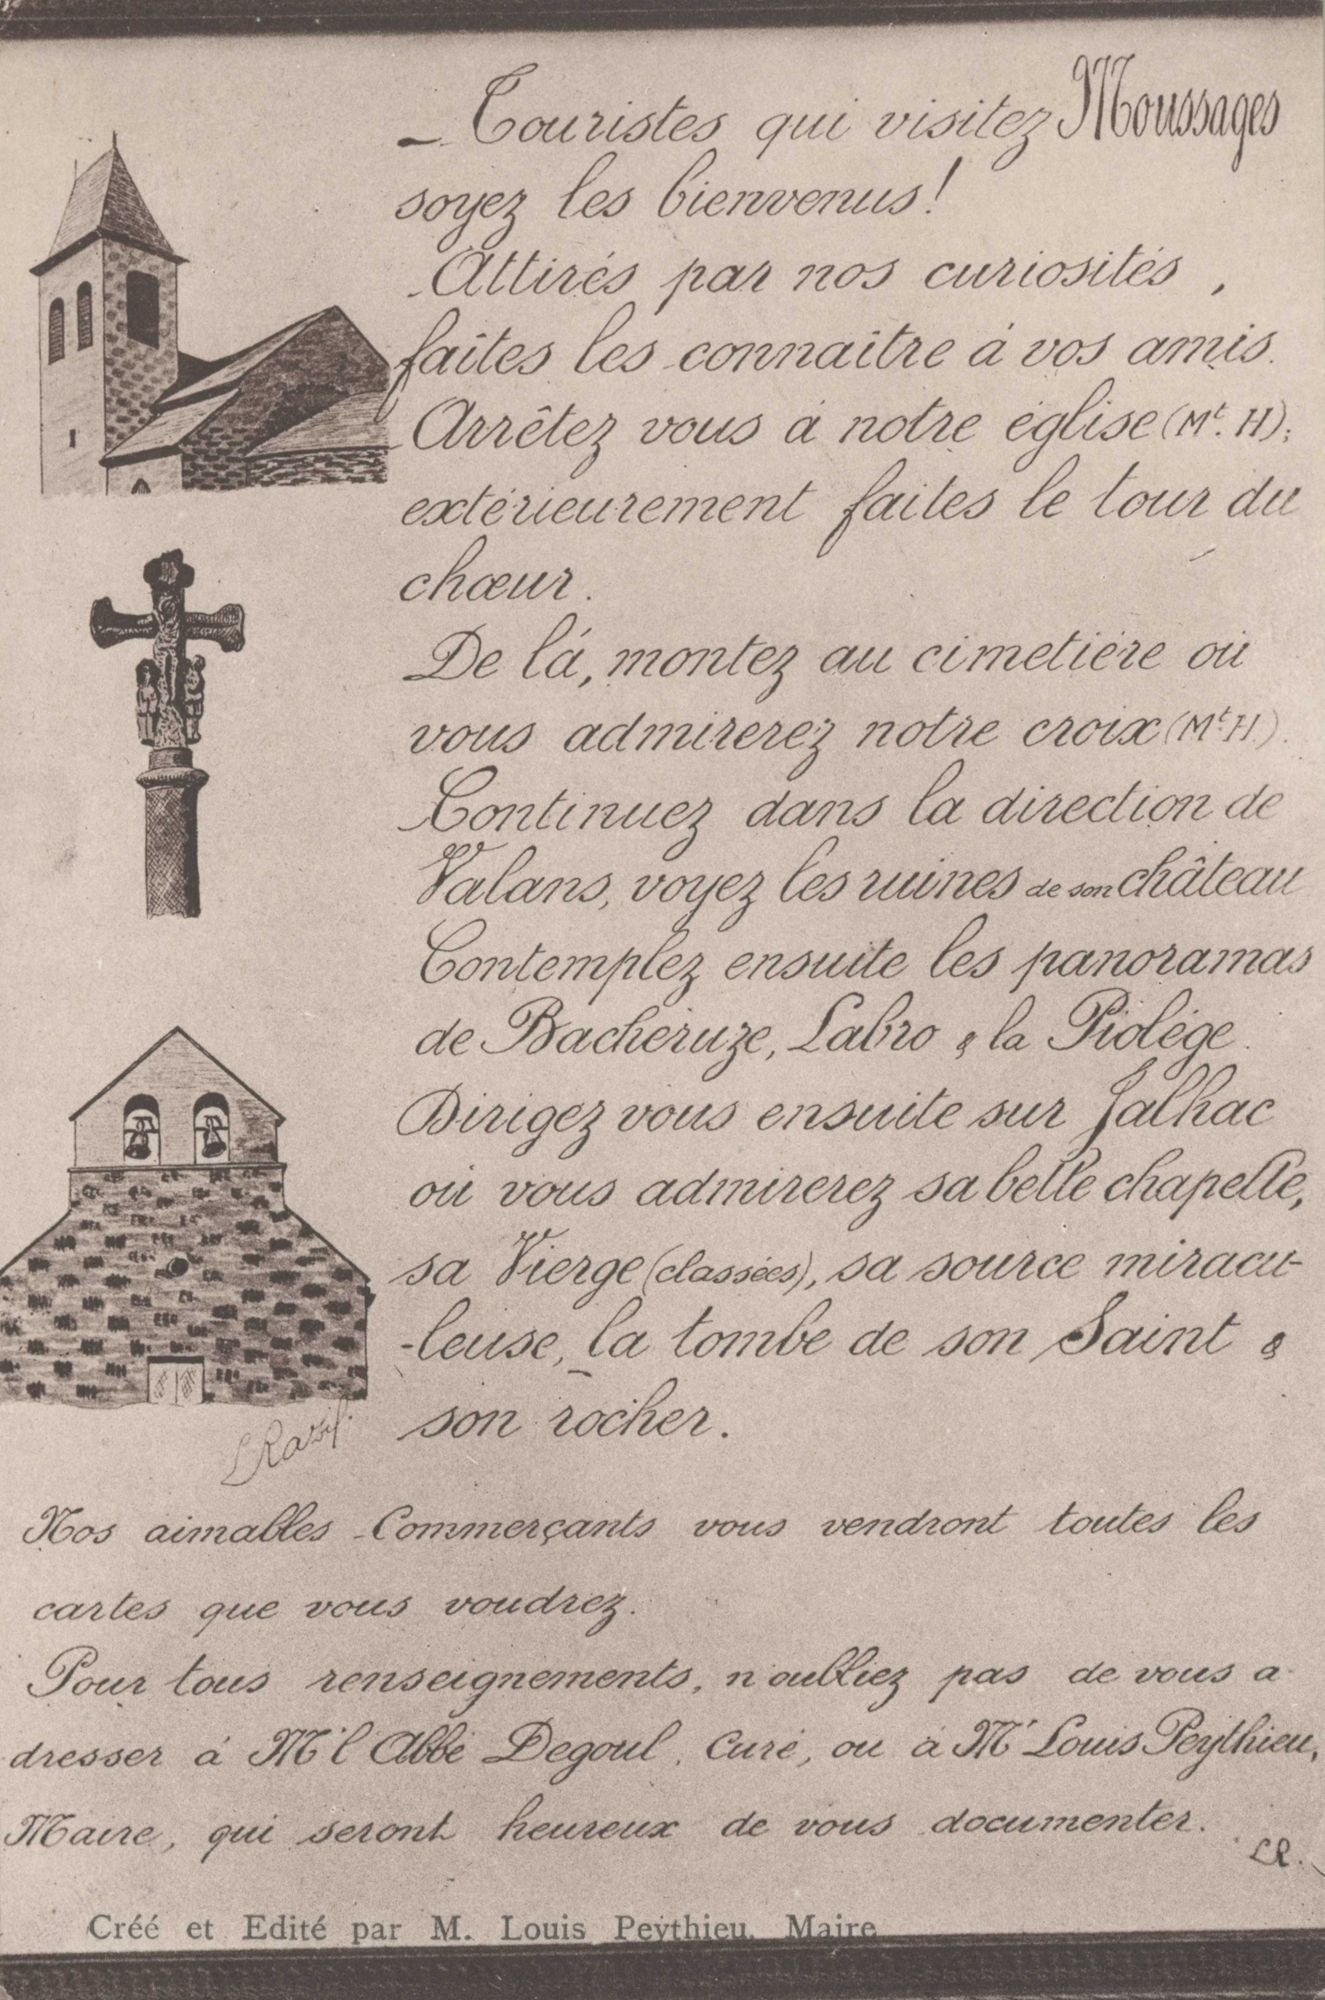 Touristes qui visitez Moussages
soyez les bienvenus!
Attirés par nos curiosités,
faîtes les connaître à vos amis.
Arrêtez vous à notre église (Mt. H);
extérieurement faites le tour du
chœur.
De là, montez au cimetière où
vous admirerez notre croix (Mt. H.)
Continuez dans la direction de
Valans, voyez les ruines de son château
Contemplez ensuite les panoramas
de Bacheruze, Labro & la Piolége.
Dirigez vous ensuite sur Jalhac
où vous admirerez sa belle chapelle,
sa Vierge (classées), sa source miracu-
-leuse, la tombe de son Saint &
son rocher.
Nos aimables Commerçants vous vendront toutes les
cartes que vous voudrez.
Pour tous renseignements, n'oubliez pas de vous a
dresser à Mr l'Abbé Degoul, Curé, ou à Mr Louis Peythieu,
Maire, qui seront heureux de vous documenter.
LR.
Créé et Edité par M. Louis Peythieu, Maire